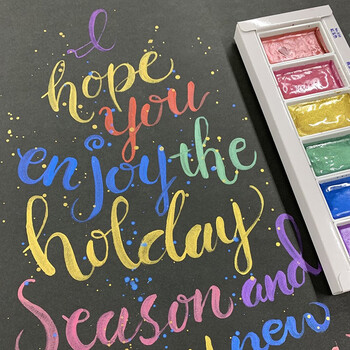 I
hope
you
enjoy the
holday
Season and
new